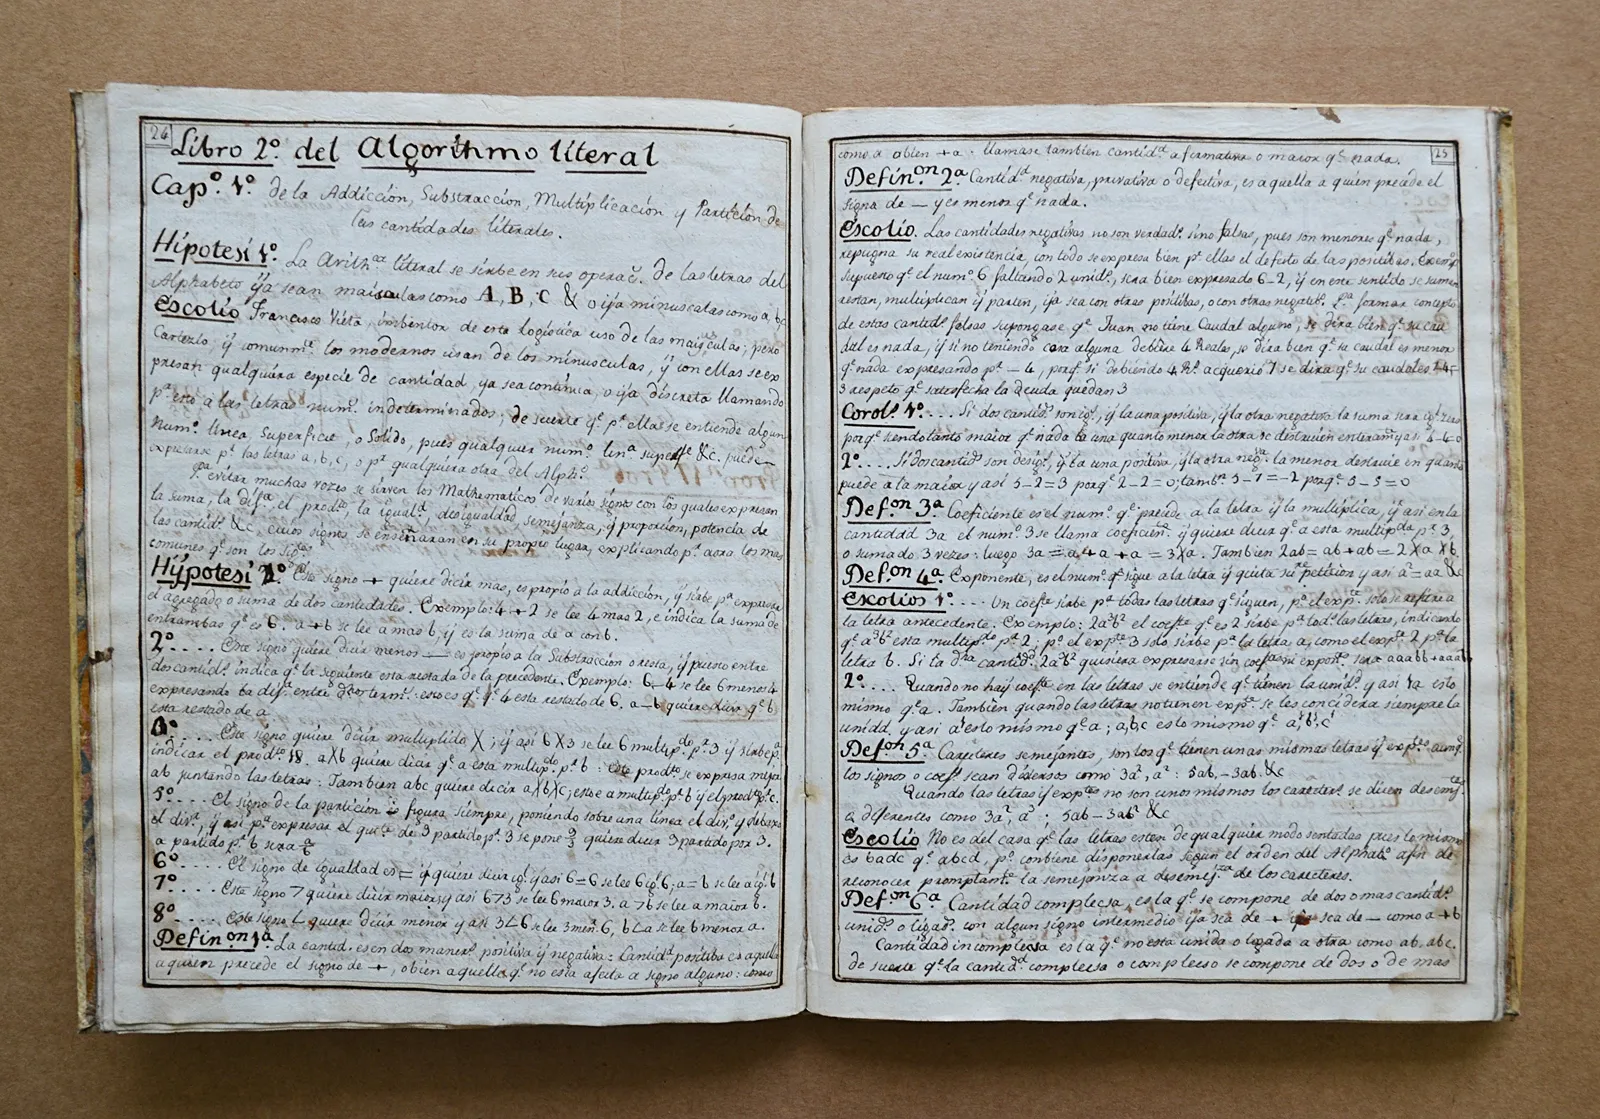 24
Libro 2º. del Algorithmo literal
Capº. 1º. de la Addiccion, Substraccion, Multiplicacion y Particion de
las cantidades literales.
Hipotesi 1º. La Arithca literal se sirbe en sus operacs. de las letras del
Alphabeto ÿa sean maiusculas como A, B, C & o ÿa minusculas como a, b, c
Escolio Francisco Vieta, imbentor de esta Logistica uso de las maiusculas; pero
Cartezio; ÿ comunmte. los modernos usan de los minusculas, ÿ con ellas se ex
presan qualquiera especie de cantidad, ya sea continua, o ÿa discreta llamando
pr. esto a las letras nums. indeterminados; de suerte qe. pr. ellas se entiende algun
Numo. linea, Superficie, o Solido, pues qualquier numo. lina. superfe &c. puede
expresarse pr. las letras a, b, c, o pr qualquiera otra del Alphto.
Pa. evitar muchas vozes se sirven los Mathematicos de varios signos con los quales expresan
la suma, la difa., el prodto, la iguald, desigualdad, semejanza, ÿ proporcion, potencia de
las cantids. &c, cuios signos se enseñaran en su propio lugar, explicando pr. aora los mas
comunes qe. son los sigtes
Hÿpotesi 2º. Este signo + quiere dicir mas, es propio a la addicion, ÿ sirbe pa. expresar
el agregado o suma de dos cantidades. Exemplo: 4+2 se lee 4 mas 2, e indica la suma de
entrambas qe. es 6. a+b se lee a mas b, ÿ es la suma de a con b.
2º.... Este signo quiere dicir menos — es propio a la Substraccion o resta, ÿ puesto entre
dos cantids. indica qe. la siguiente esta restada de la precedente. Exemplo: 6-4 se lee 6 menos 4
expresando la difa. entre dhos terms: esto es qe. qe. 4 esta restado de 6. a-b quiere dicir qe. b
esta restado de a.
3º.... Este signo quiere dicir multiplido X; ÿ asi 6X3 se lee 6 multipdo. pr. 3 ÿ sirbe pa.
indicar el prodto 18. aXb quiere dicir qe. a esta multipdo. pr. b: este prodto se expresa mejor
ab juntando las letras: Tambien abc quiere dicir aXbXc; esto es a multipdo pr. b ÿ el prodto pr. c.
5º.... El signo de la particion es figura siempre, poniendo sobre una linea el divo. ÿ debaxo
el divr., ÿ asi pa. expresar el quote. de 9 partido pr. 3 se pone 9/3 quiere dicir 9 partido por 3.
a partido pr. b sera a/b
6º.... El signo de igualdad es = ÿ quiere dicir igl. ÿ asi 6=6 se lee 6 igl. 6; a=b se lee a igl. b
7º.... Este signo 7 quiere dicir maior, ÿ asi 673 se lee 6 maior 3. a 7b se lee a maior b.
8º.... Este signo L quiere dicir menor ÿ asi 3L6 se lee 3 men. 6, bLa se lee b menor a.
Definon 1a. La cantid. es en dos maners. positiva ÿ negativa: Cantidd. positiba es aquella
a quien precede el signo de +, o bien aquella qe. no esta afecta a signo alguno: como
25
como a o bien +a. llamase tambien cantidd. afirmativa o maior qe. nada.
Definon. 2a. Cantidd. negativa, privativa o defectiva, es aquella a quien precede el
signa de — y es menor qe. nada.
Escolio. Las cantidades negativas no son verdads. sino falsas, pues son menores qe. nada,
repugna su real existencia, con todo se expresa bien pr. ellas el defecto de las positibas. Exempo
supuesto qe. el numo. 6 faltando 2 unids., sera bien expresado 6-2, ÿ en este sentido se suman
restan, multiplican ÿ parten, ÿa sea con otras positibas, o con otras negatibs. Pa. formar concepto
de estas cantids. falsas supongase qe. Juan no tiene Caudal alguno, se dira bien qe. su cau
dal es nada, ÿ si no teniendo cosa alguna debiere 4 Reales, se dira bien qe. su caudal es menor
qe. nada expresando pr. -4, porqe. si debiendo 4 Rs. acquerio 1 se dira qe. su caudal es 1-4=
3 respeto qe. satisfecha la deuda quedan 3
Corolo. 1º.... Si dos cantids. son igs., ÿ la una positiva, ÿ la otra negativa la suma sera igl. zero
porqe. siendo tanto maior qe. nada la una quanto menor la otra se destruien enteramte ÿ asi 4-4=0
2º.... Si dos cantids. son desigs., ÿ la una positiva, ÿ la otra nega. la menor destruie en quanto
puede a la maior y asi 5-2=3 porqe. 2-2=0; tambn. 5-7=-2 porqe. 5-5=0
Defon. 3a. Coeficiente es el numo. qe. precede a la letra ÿ la multiplica, ÿ asi en la
cantidad 3a el numo. 3 se llama coeficiente. ÿ quiere dicir qe. a esta multipda pr. 3,
o sumado 3 vezes: luego 3a=a+a+a=3Xa. Tambien 2ab=ab+ab=2XaXb.
Defon. 4a. Exponente, es el numo. qe. sigue a la letra ÿ quita su repeticion y asi a²=aa &c
Escolios 1º.... Un coefte. sirbe pa. todas las letras qe. siguen, po. el expte. solo se refire a
la letra antecedente. Exemplo: 2a³b² el coefte qe. es 2 sirbe pa. tods. las letras, indicando
qe. a³b² esta multipdo. pr. 2; po. el expte 3 solo sirbe pa. la letra a, como el expte 2 pa. la
letra b. Si la dha cantidd. 2a³b² quisiera expresarse sin coefte ni expon. sera aaabb+aaabb
2º.... Quando no hay coefte. en las letras se entiende qe. tienen la unidd. y asi 1a esto
mismo qe. a. Tambien quando las letras no tienen expte. se les concidera siempre la
unidd. y asi a¹ es lo mismo qe. a; a,b,c es lo mismo qe. a¹,b¹,c¹
Defon. 5a. Caracteres semejantes, son los qe. tienen unas mismas letras ÿ exptes aunqe.
los signos o coefs. sean diversos como 3a², a²: 5ab, -3ab. &c
Quando las letras ÿ exptes no son unos mismos los caracters. se dicen desemj.tes
o diferentes como 3a², a³: 5ab-3ab² &c
Escolio No es del casa qe. las letras esten de qualquier modo sentadas pues lo mismo
es badc qe. abcd, po. conbiene disponerlas segun el orden del Alphato. afin de
reconocer promptamte. la semejanza o desemejza de los caracteres.
Defon. 6a. Cantidad complecsa, es la qe. se compone de dos o mas cantids.
unids. o ligads. con algun signo intermedio ÿa sea de + ÿa sea de — como a+b
Cantidad incomplecsa es la qe. no esta unida o ligada a otra como ab, abc.
de suerte qe. la cantidd. complecsa o complecso se compone de dos o de mas